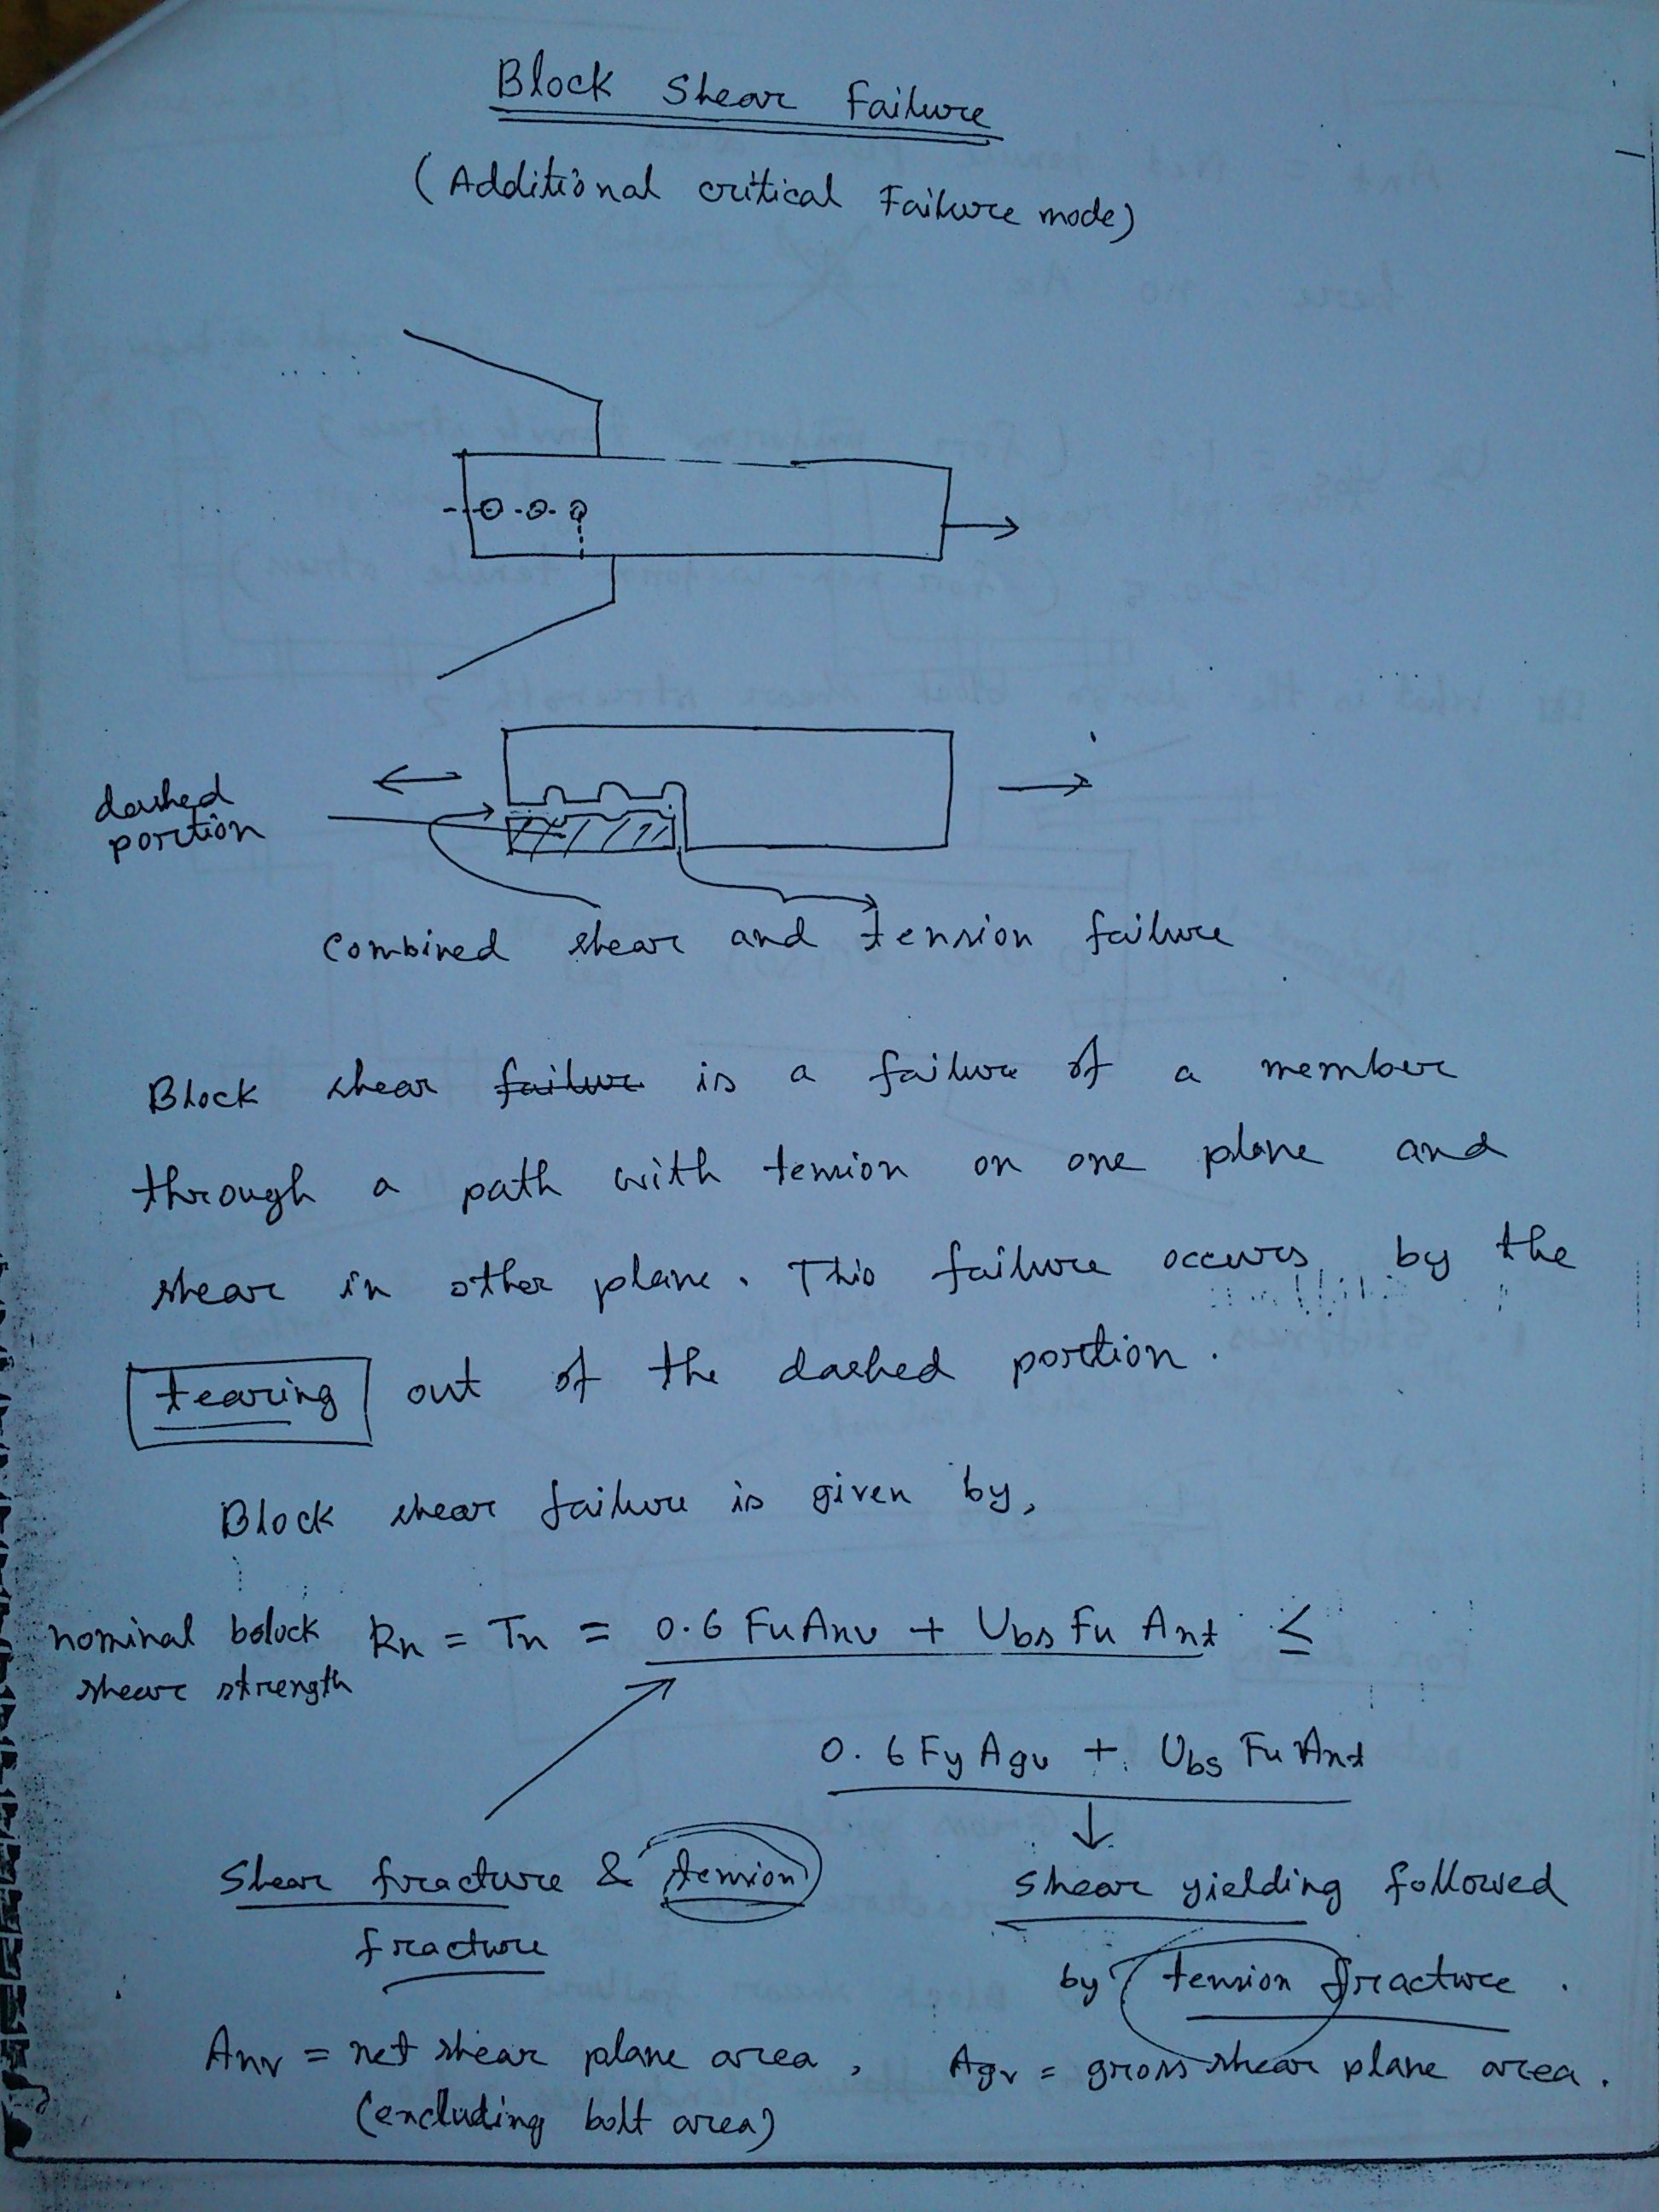 Block Shear Failure
(Additional critical Failure mode)
dashed
portion
Combined shear and tension failure
Block shear failure is a failure of a member
through a path with tension on one plane and
shear in other plane. This failure occurs by the
tearing out of the dashed portion.
Block shear failure is given by,
nominal bolock Rn = Tn = 0.6 Fu Anv + Ubs Fu Ant ≤
shear strength
0.6 Fy Agv + Ubs Fu Ant
Shear fracture & tension
fracture
shear yielding followed
by tension fracture.
Anv = net shear plane area, Agv = gross shear plane area.
(excluding bolt area)